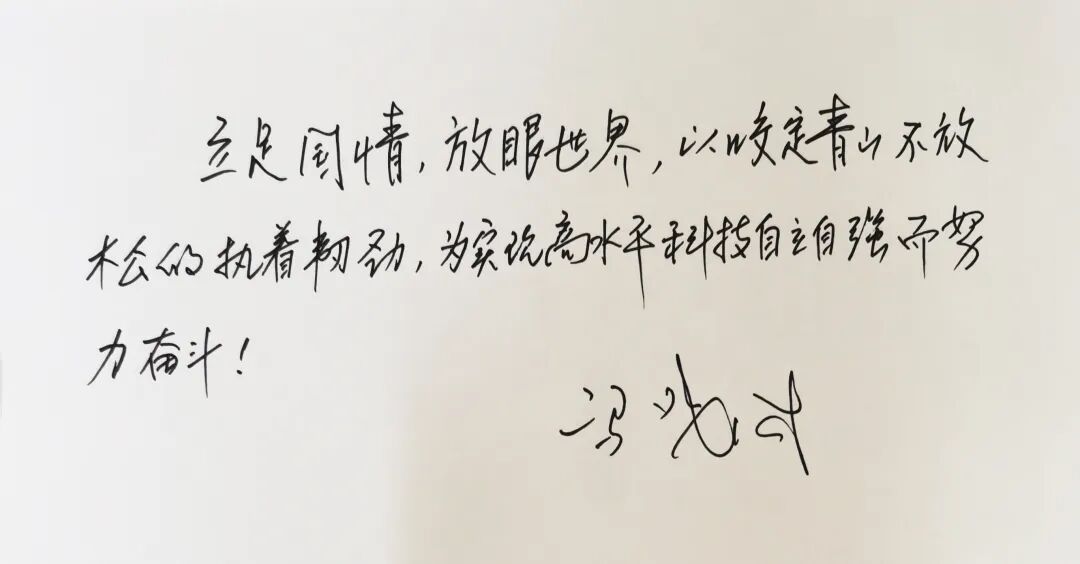 立足国情，放眼世界，以咬定青山不放
松的执着韧劲，为实现高水平科技自立自强而努
力奋斗！
冯